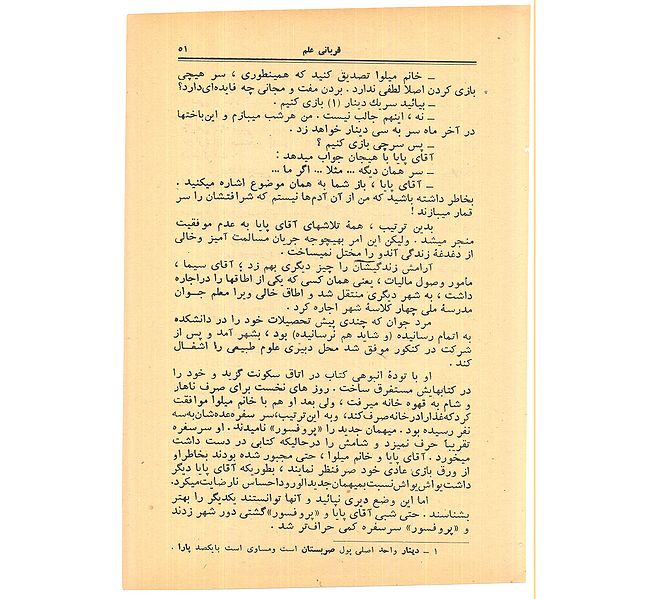 ۵۱
قربانی علم
ـ خانم میلوا تصدیق کنید که همینطوری ، سر هیچی
بازی کردن اصلا لطفی ندارد . بردن مفت و مجانی چه فایده‌ای‌دارد؟
ـ بیائید سریك دینار (۱) بازی کنیم .
ـ نه ، اینهم جالب نیست . من هرشب میبازم و این‌باختها
در آخر ماه سر به سی دینار خواهد زد .
ـ پس سرچی بازی کنیم ؟
آقای پایا با هیجان جواب میدهد :
ـ سر همان دیگه ... مثلا ... اگر ما ...
ـ آقای پایا ، باز شما به همان موضوع اشاره میکنید .
بخاطر داشته باشید که من از آن آدم‌ها نیستم که شرافتشان را سر
قمار میبازند !
بدین ترتیب ، همهٔ تلاشهای آقای پایا به عدم موفقیت
منجر میشد . ولیکن این امر بهیچوجه جریان مسالمت آمیز وخالی
از دغدغهٔ زندگی آندو را مختل نمیساخت .
آرامش زندگیشان را چیز دیگری بهم زد ؛ آقای سیما ،
مأمور وصول مالیات ، یعنی همان کسی که یکی از اطاقها را دراجاره
داشت ، به شهر دیگری منتقل شد و اطاق خالی ویرا معلم جوان
مدرسهٔ ملی چهار کلاسهٔ شهر اجاره کرد .
مرد جوان که چندی پیش تحصیلات خود را در دانشکده
به اتمام رسانیده (و شاید هم نرسانیده) بود ، بشهر آمد و پس از
شرکت در کنکور موفق شد محل دبیری علوم طبیعی را اشغال
کند .
او با تودهٔ انبوهی کتاب در اتاق سکونت گزید و خود را
در کتابهایش مستغرق ساخت . روز های نخست برای صرف ناهار
و شام به قهوه خانه میرفت ، ولی بعد او هم با خانم میلوا موافقت
کردکه‌غذارادرخانه‌صرف‌کند، وبه این‌ترتیب،سر سفره‌عده‌شان‌به‌سه
نفر رسیده بود . میهمان جدید را «پروفسور» نامیدند . او سرسفره
تقریباً حرف نمیزد و شامش را درحالیکه کتابی در دست داشت
میخورد . آقای پایا و خانم میلوا ، حتی مجبور شده بودند بخاطراو
از ورق بازی عادی خود صرفنظر نمایند ، بطوریکه آقای پایا دیگر
داشت‌یواش‌یواش‌نسبت‌بمیهمان‌جدیدالورود‌احساس نارضایت‌میکرد.
اما این وضع دیری نپائید و آنها توانستند یکدیگر را بهتر
بشناسند . حتی شبی آقای پایا و «پروفسور»گشتی دور شهر زدند
و «پروفسور» سرسفره کمی حراف‌تر شد .
۱ ـ دینار واحد اصلی پول صربستان است ومساوی است بایکصد پارا .